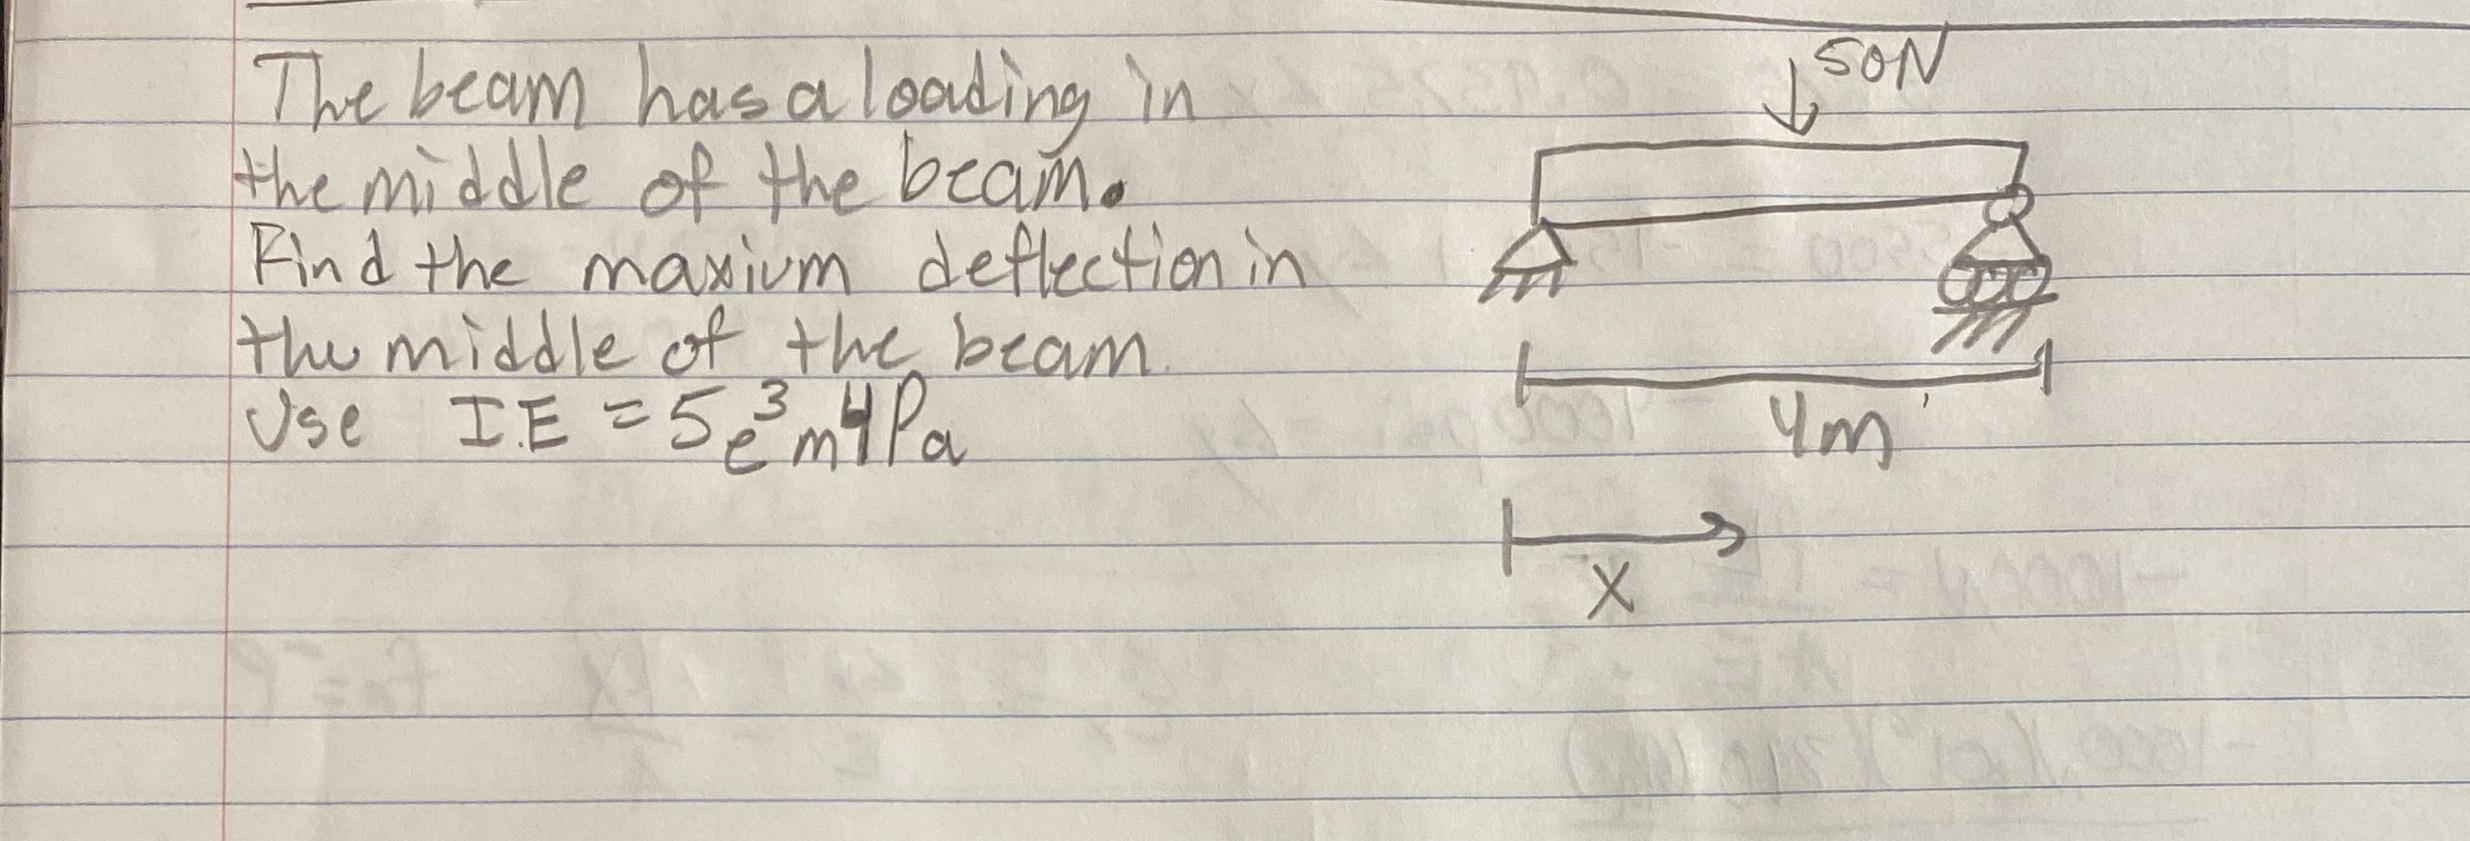 The beam has a loading in
the middle of the beam.
Find the maxium deflection in
the middle of the beam
Use I.E = 5e³ m⁴Pa
50N
4m
X